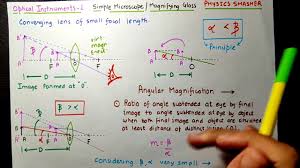 Optical Instruments-1
Simple Microscope / Magnifying Glass
PHYSICS SMASHER
Converging lens of small focal length.
α < β
Principle
D
D
Image formed at 'D'
Angular Magnification →
β > α
① Ratio of angle subtended at eye by final
image to angle subtended at eye by object
when both final image and object are situated
at least distance of distinct vision (D)
m = β/α
D
Considering α & β very small →